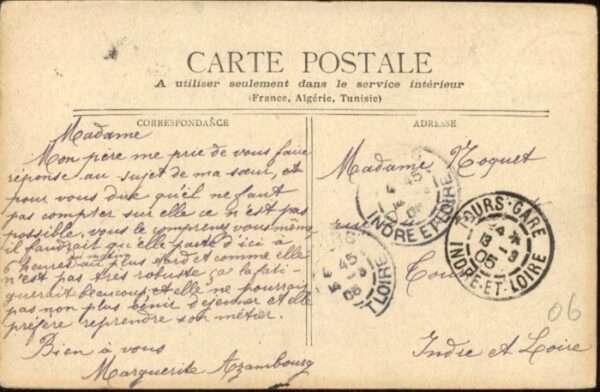 CARTE POSTALE
A utiliser seulement dans le service intérieur
(France, Algérie, Tunisie)
CORRESPONDANCE
Madame
Mon père me prie de vous faire
réponse au sujet de ma sœur, et
pour vous dire qu'il ne faut
pas compter sur elle ce n'est pas
possible, vous le comprenez vous même
il faudrait qu'elle parte d'ici à
6 heures au plus tard et comme elle
n'est pas très robuste ça la fati-
guerait beaucoup et elle ne pourrait
pas non plus venir déjeuner et elle
préfère reprendre son métier.
Bien à vous
Marguerite Azambourg
ADRESSE
Madame Hoquet
rue
Tou
Indre et Loire
45
INDRE ET LOIRE
TOURS-GARE
13 -9
05
INDRE-ET-LOIRE
45
T LOIRE
06